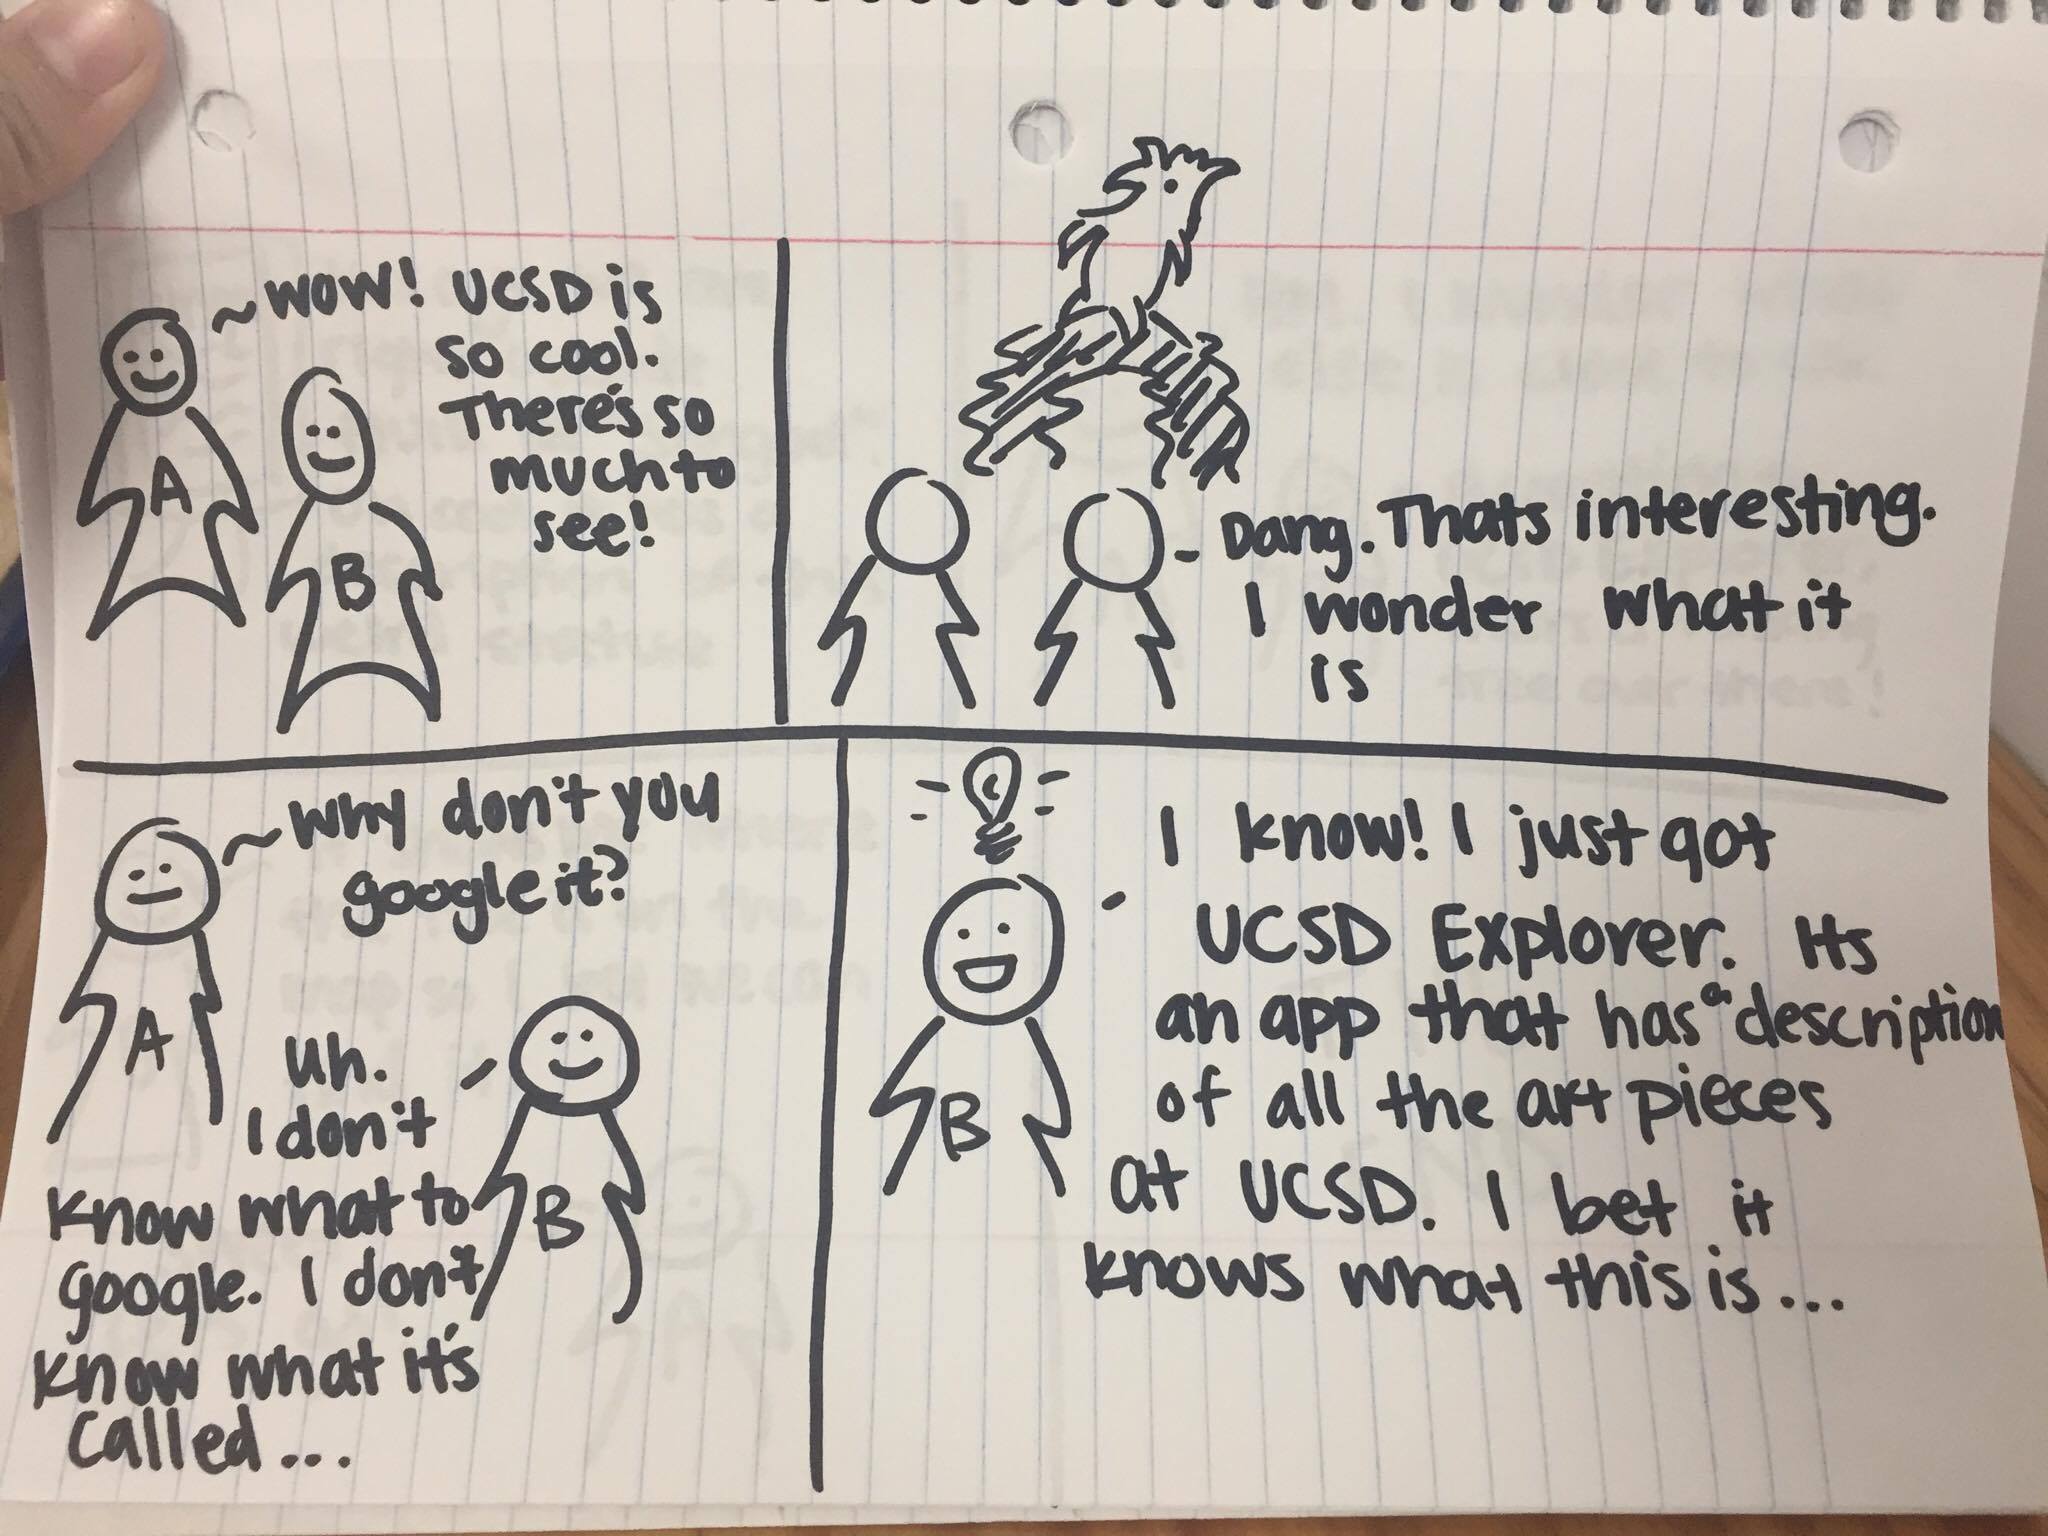 ~WOW! UCSD is
so cool.
There's so
much to
see!
A
B
- Dang. Thats interesting.
I wonder what it
is
~Why don't you
google it?
A
Uh.
I don't
know what to
google. I don't
know what it's
called...
B
I know! I just got
UCSD Explorer. Its
an app that has a description
of all the art pieces
at UCSD. I bet it
knows what this is...
B